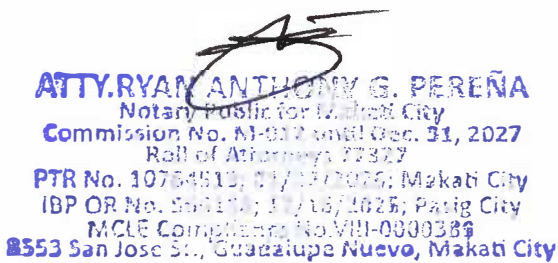 ATTY.RYAN ANTHONY G. PEREÑA
Notary Public for Makati City
Commission No. until Dec. 31, 2027
Roll of Attorneys
PTR No. Makati City
IBP OR No. Pasig City
MCLE Compliance No.VIII-0000388
8553 San Jose St., Guadalupe Nuevo, Makati City